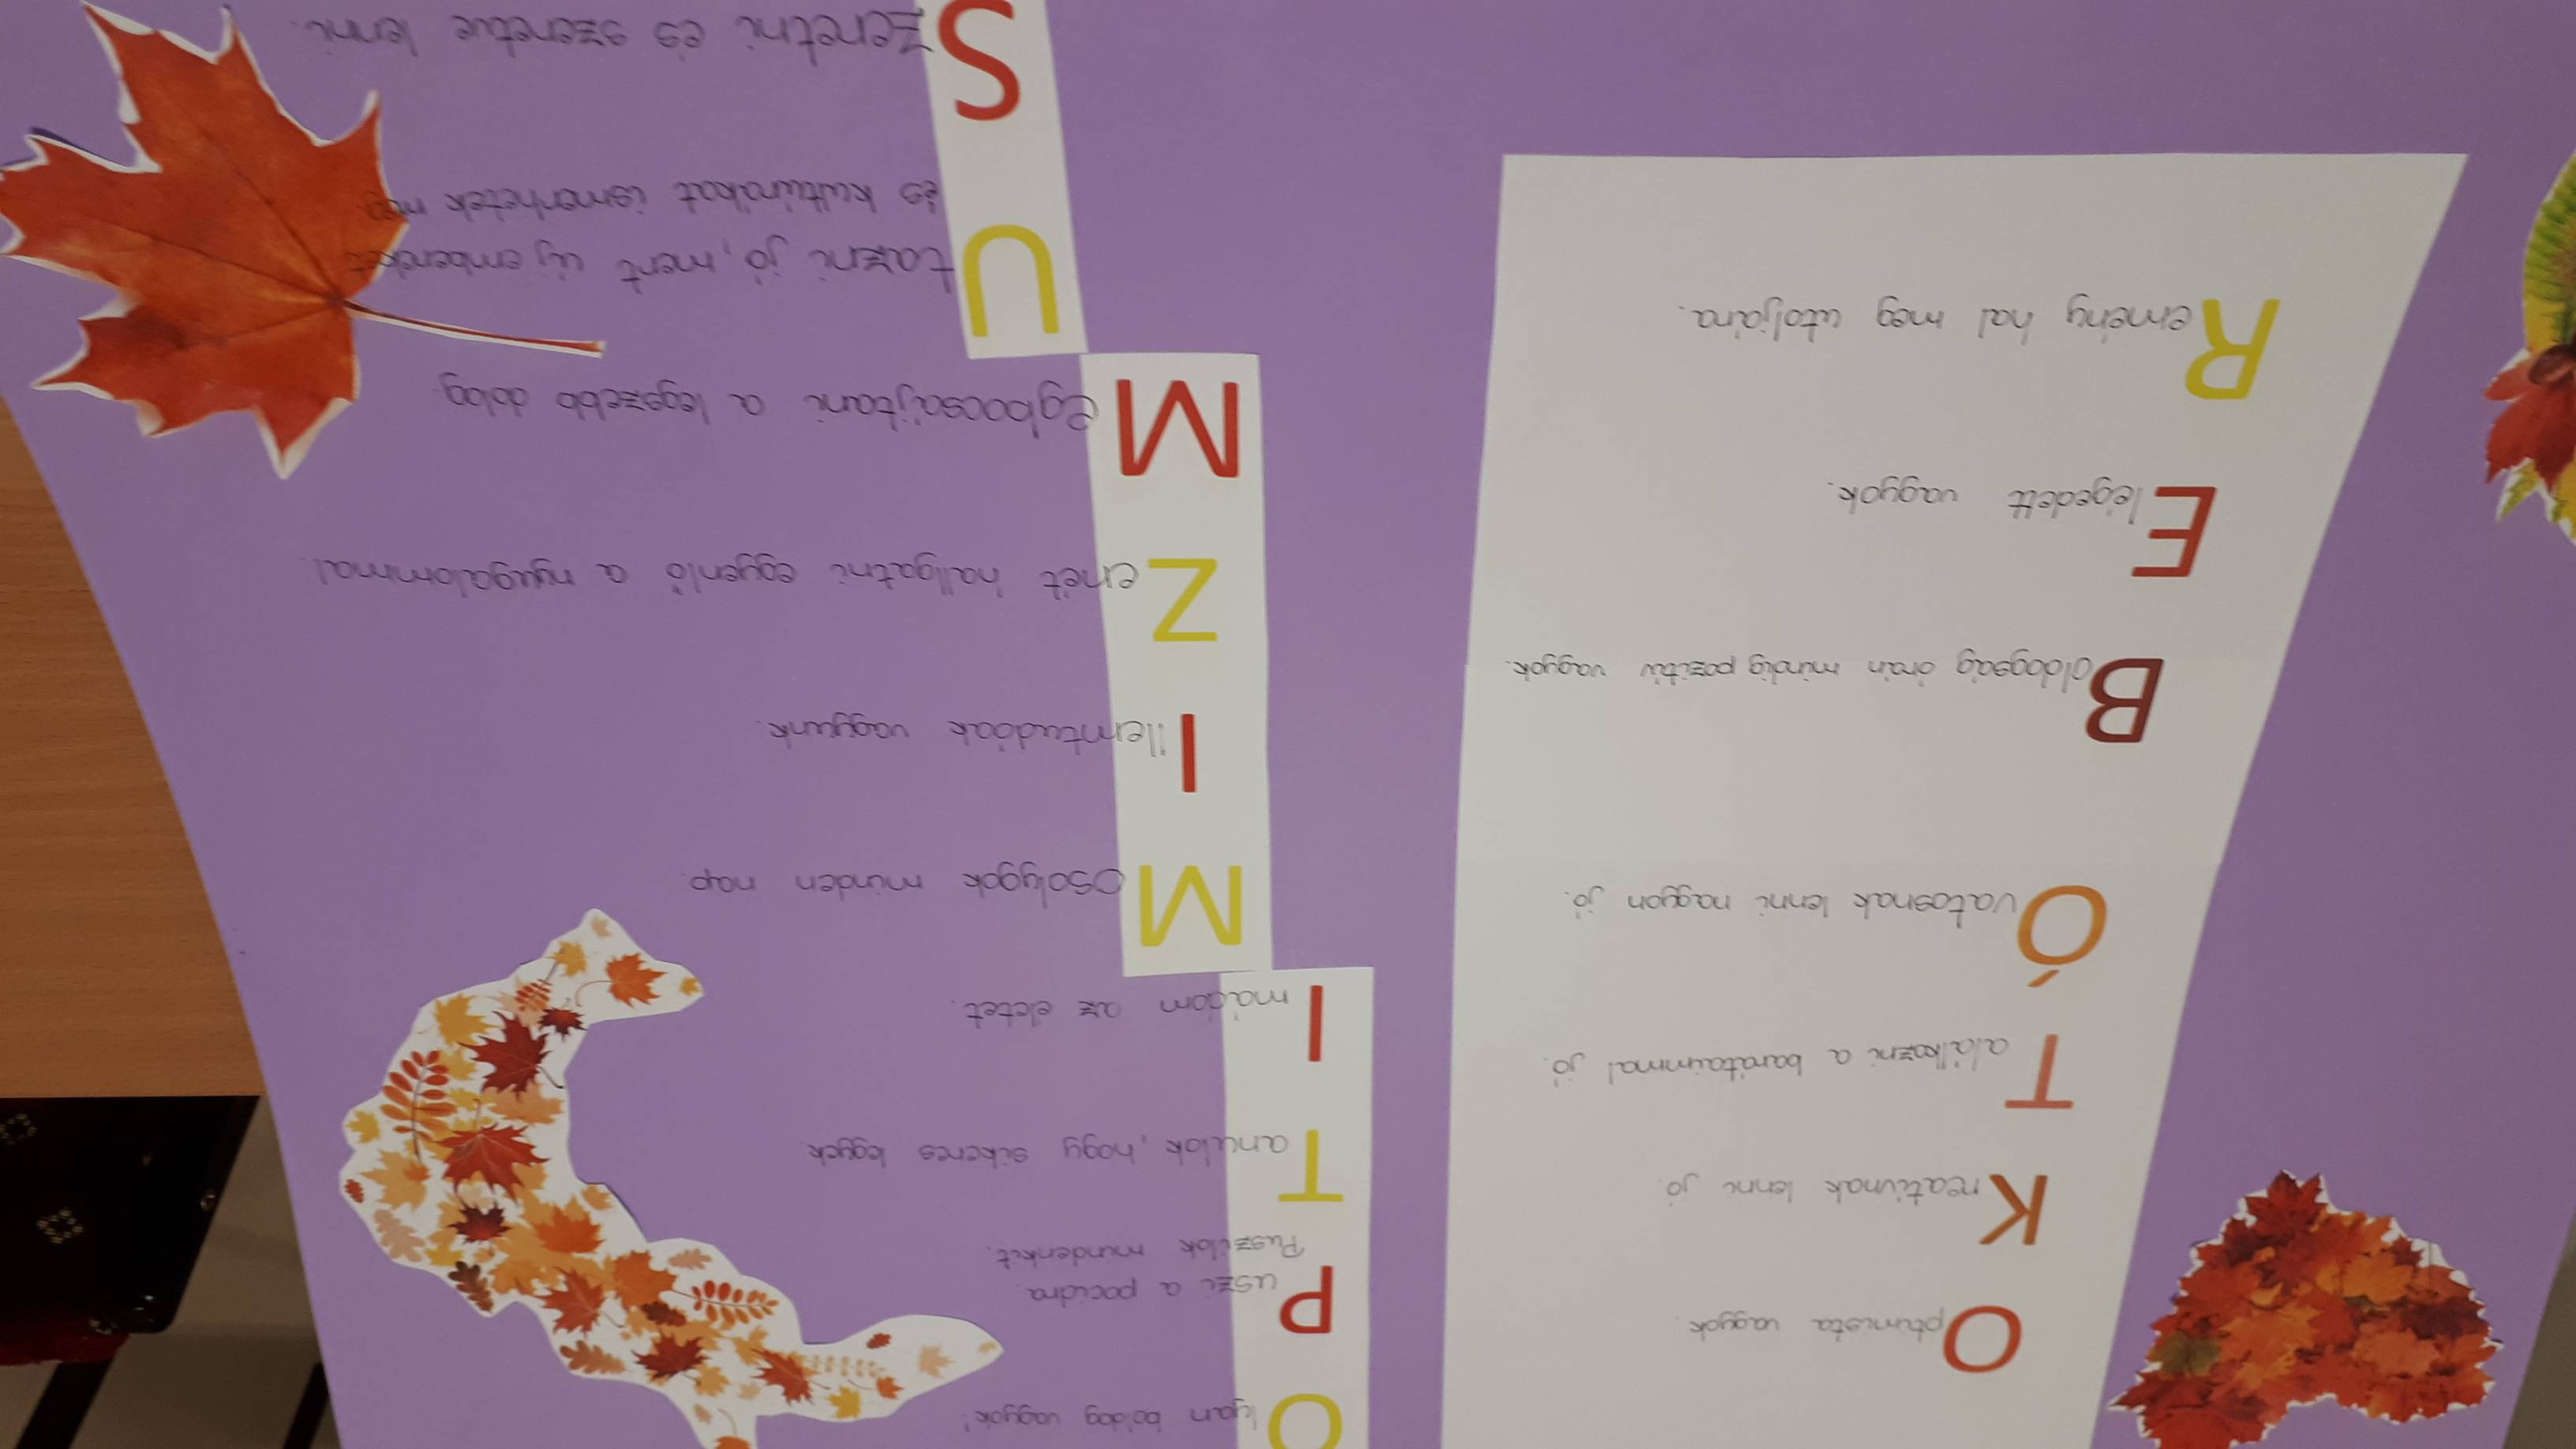 Optimista vagyok.
Kreatívnak lenni jó.
Találkozni a barátaimmal jó.
Óvatosnak lenni nagyon jó.
Boldogság órán mindig pozitív vagyok.
Elégedett vagyok.
Remény hal meg utoljára.
Olyan boldog vagyok!
Puszi a pocidra.
Puszilok mindenkit.
Tanulok, hogy sikeres legyek
Imádom az életet.
Mosolygok minden nap.
Illemtudóak vagyunk.
Zenét hallgatni egyenlő a nyugalommal.
Megbocsájtani a legszebb dolog.
Utazni jó, mert új embereket
és kultúrákat ismerhetek meg.
Szeretni és szeretve lenni.